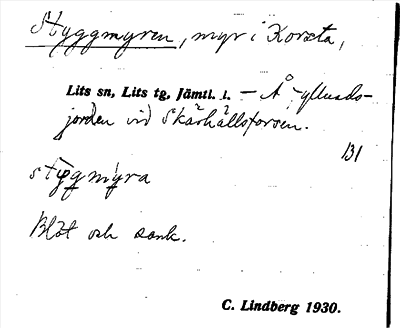 Styggmyren, myr i Korsta,
Lits sn, Lits tg, Jämtl. l. — Å Gyllnäs-
jorden vid Skärhällsforsen.
131
stygmyra
Blöt och sank.
C. Lindberg 1930.